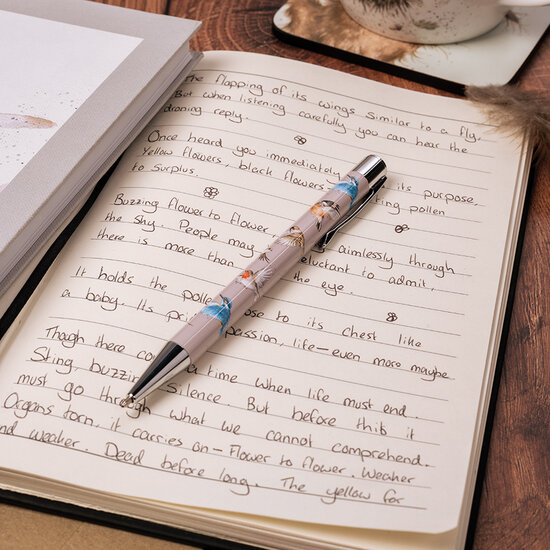 The flapping of its wings similar to a fly.
But when listening carefully you can hear the
droning reply.
Once heard you immediately its purpose,
Yellow flowers, black flowers ing pollen
to surplus.
Buzzing flower to flower, aimlessly through
the sky. People may reluctant to admit,
there is more than the eye.
It holds the pollen to its chest like
a baby. Its passion, life-even more maybe.
Though there a time when life must end.
Sting, buzzing silence. But before this it
must go through what we cannot comprehend.
Organs torn, it carries on - Flower to flower. Weaker
and weaker. Dead before long. The yellow far